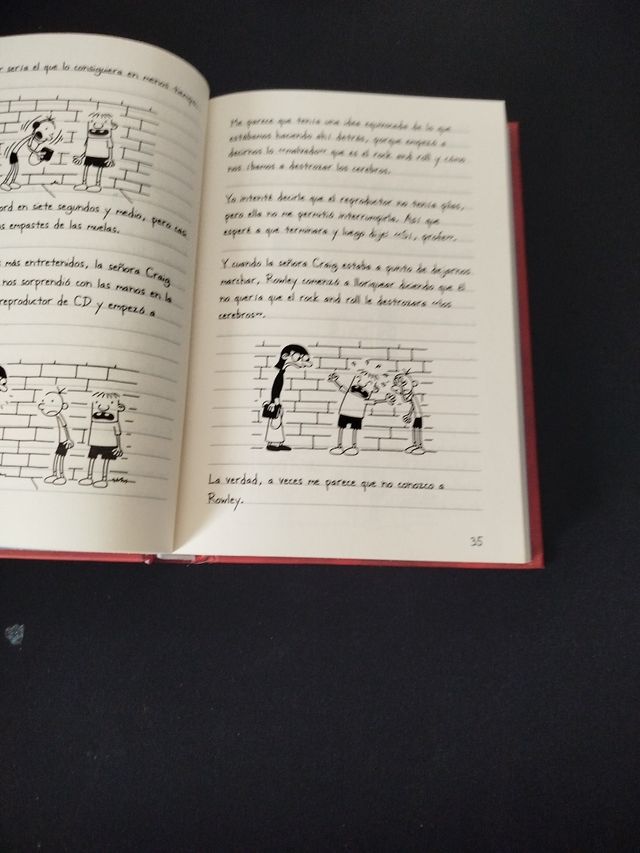 r sería el que lo consiguiera en menos tiempo.
ord en siete segundos y medio, pero casi
s empastes de las muelas.
más entretenidos, la señora Craig
nos sorprendió con las manos en la
reproductor de CD y empezó a
Me parece que tenía una idea equivocada de lo que
estábamos haciendo ahí detrás, porque empezó a
decirnos lo «malvado» que es el rock and roll y cómo
nos íbamos a destrozar los cerebros.
Yo intenté decirle que el reproductor no tenía pilas,
pero ella no me permitió interrumpirla. Así que
esperé a que terminara y luego dije «Sí, profe».
Y cuando la señora Craig estaba a punto de dejarnos
marchar, Rowley comenzó a lloriquear diciendo que él
no quería que el rock and roll le destrozara «los
cerebros».
La verdad, a veces me parece que no conozco a
Rowley.
35